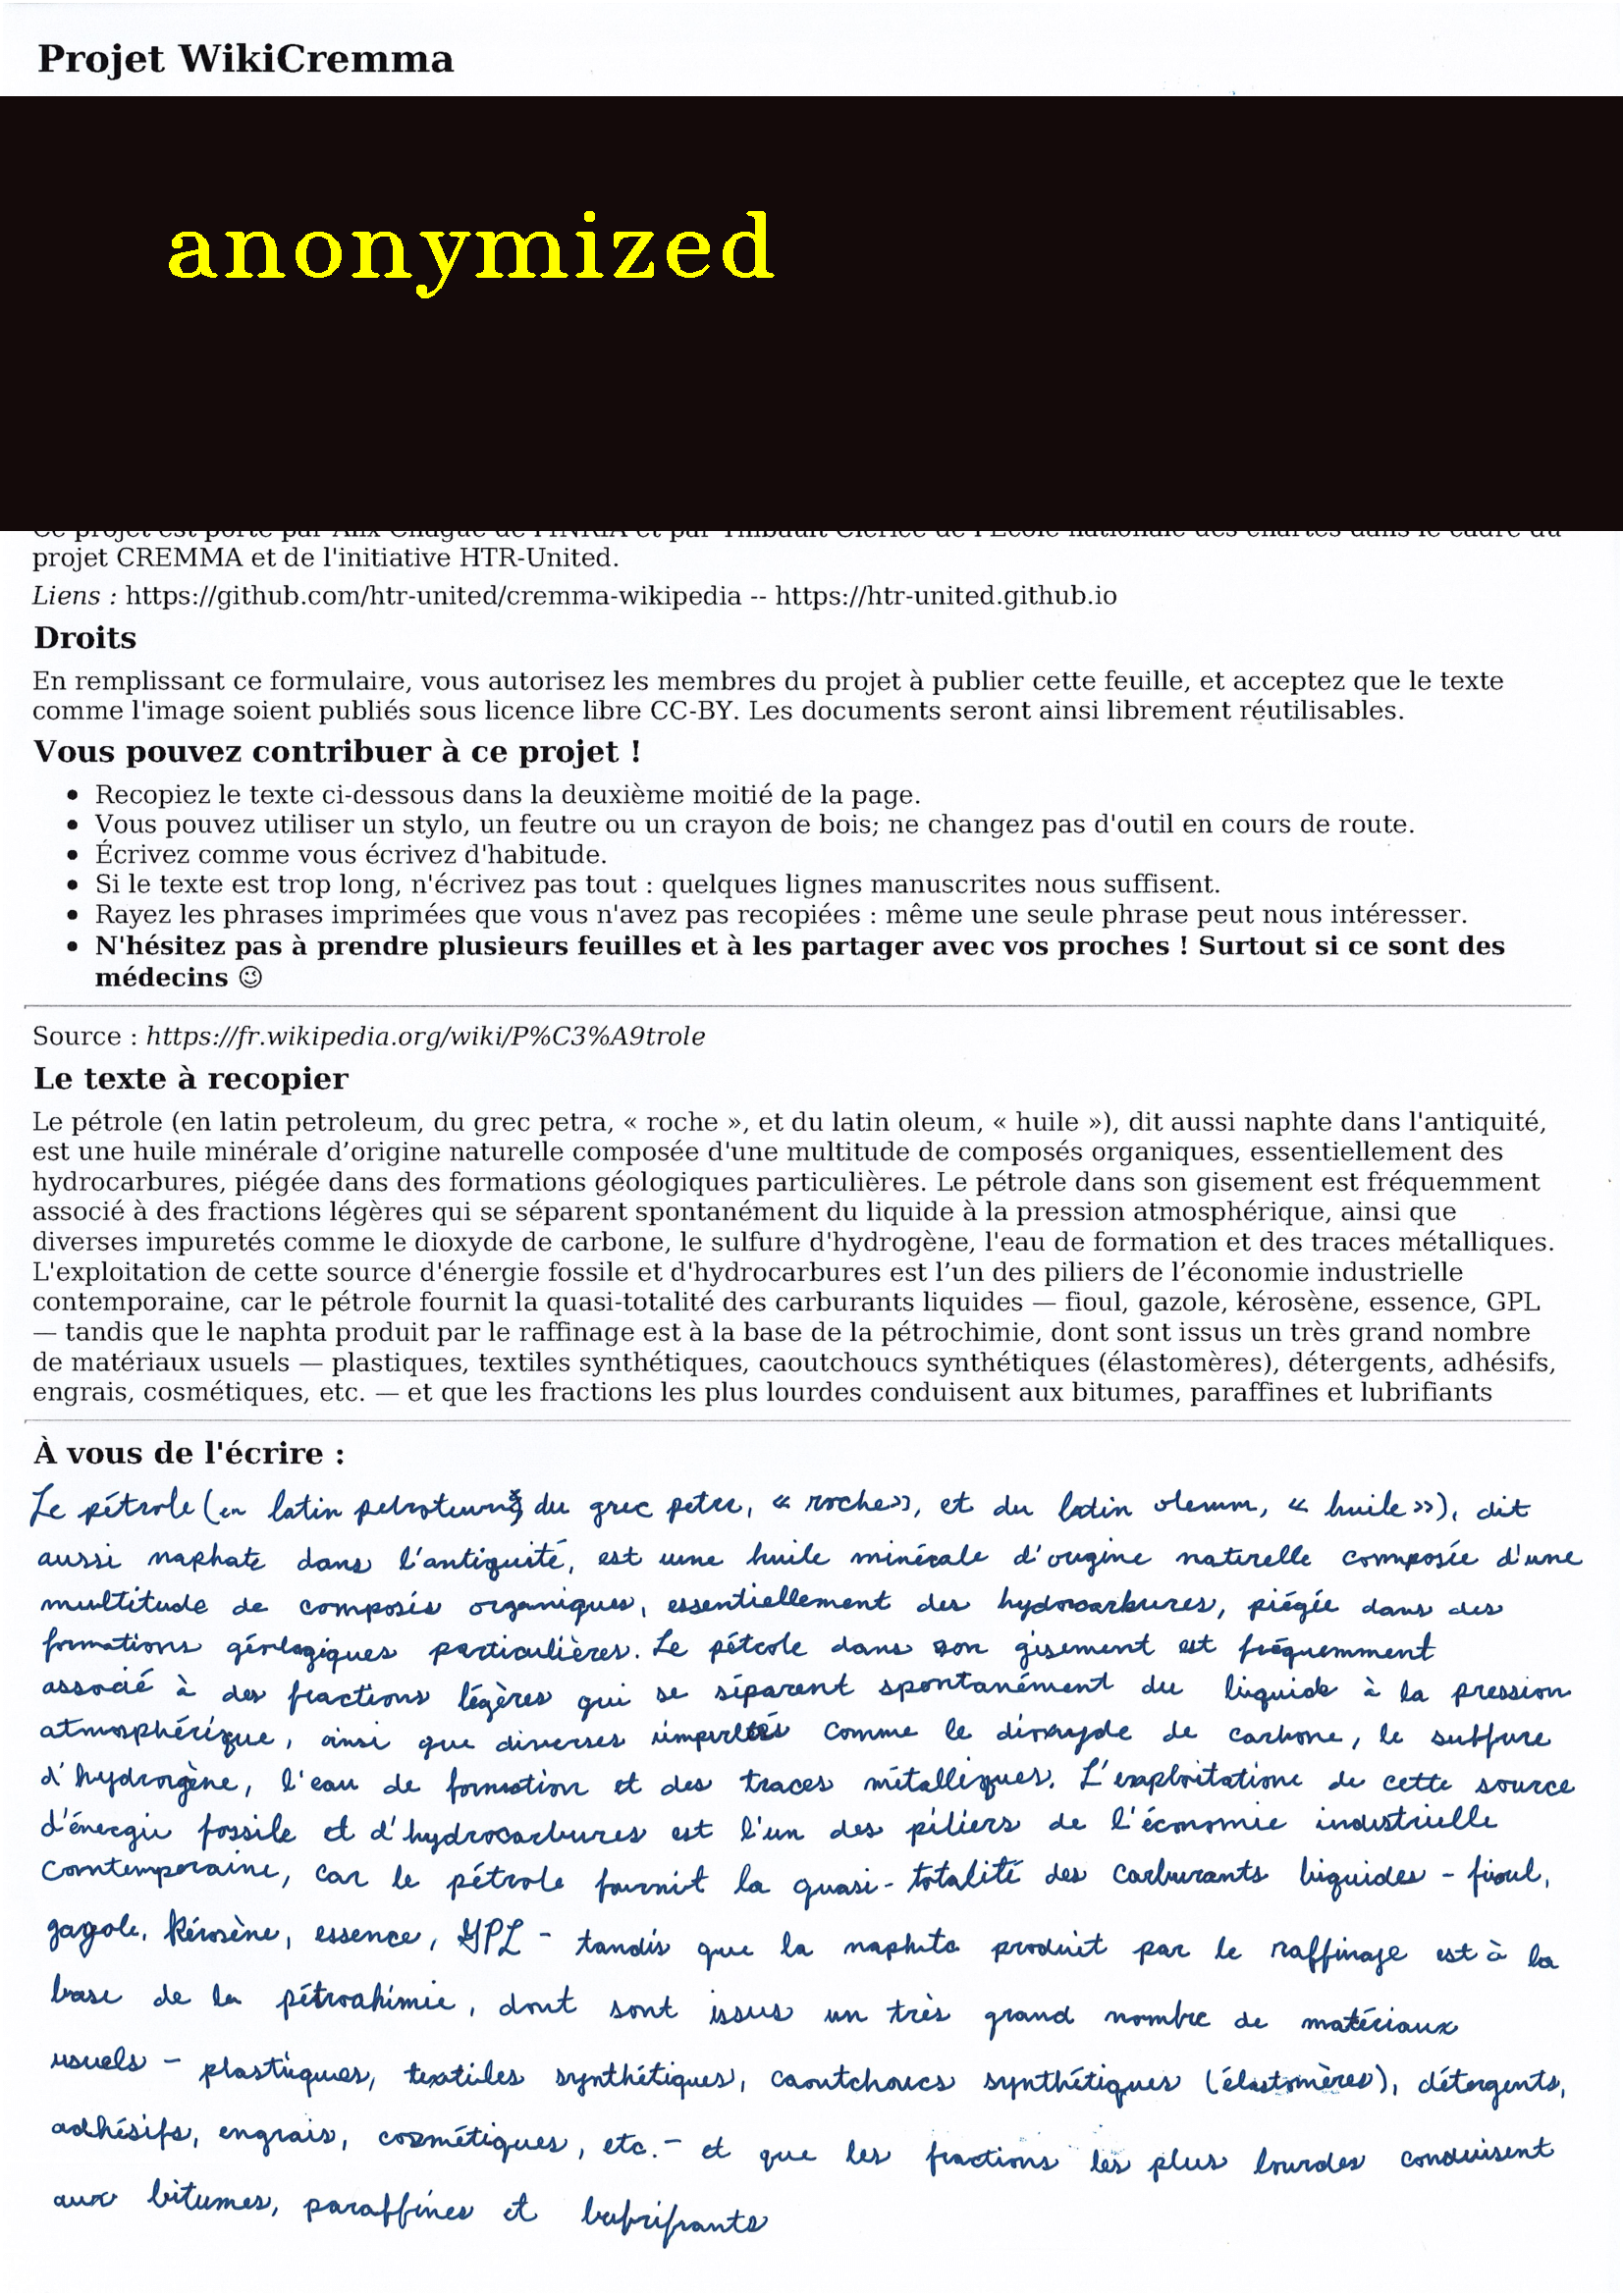 Projet WikiCremma
anonymized
Ce projet est porté par Alix Chagué de l'INRIA et par Thibault Clérice de l'École nationale des chartes dans le cadre du
projet CREMMA et de l'initiative HTR-United.
Liens : https://github.com/htr-united/cremma-wikipedia -- https://htr-united.github.io
Droits
En remplissant ce formulaire, vous autorisez les membres du projet à publier cette feuille, et acceptez que le texte
comme l'image soient publiés sous licence libre CC-BY. Les documents seront ainsi librement réutilisables.
Vous pouvez contribuer à ce projet !
• Recopiez le texte ci-dessous dans la deuxième moitié de la page.
• Vous pouvez utiliser un stylo, un feutre ou un crayon de bois; ne changez pas d'outil en cours de route.
• Écrivez comme vous écrivez d'habitude.
• Si le texte est trop long, n'écrivez pas tout : quelques lignes manuscrites nous suffisent.
• Rayez les phrases imprimées que vous n'avez pas recopiées : même une seule phrase peut nous intéresser.
• N'hésitez pas à prendre plusieurs feuilles et à les partager avec vos proches ! Surtout si ce sont des
médecins ☺
Source : https://fr.wikipedia.org/wiki/P%C3%A9trole
Le texte à recopier
Le pétrole (en latin petroleum, du grec petra, « roche », et du latin oleum, « huile »), dit aussi naphte dans l'antiquité,
est une huile minérale d’origine naturelle composée d'une multitude de composés organiques, essentiellement des
hydrocarbures, piégée dans des formations géologiques particulières. Le pétrole dans son gisement est fréquemment
associé à des fractions légères qui se séparent spontanément du liquide à la pression atmosphérique, ainsi que
diverses impuretés comme le dioxyde de carbone, le sulfure d'hydrogène, l'eau de formation et des traces métalliques.
L'exploitation de cette source d'énergie fossile et d'hydrocarbures est l’un des piliers de l’économie industrielle
contemporaine, car le pétrole fournit la quasi-totalité des carburants liquides — fioul, gazole, kérosène, essence, GPL
— tandis que le naphta produit par le raffinage est à la base de la pétrochimie, dont sont issus un très grand nombre
de matériaux usuels — plastiques, textiles synthétiques, caoutchoucs synthétiques (élastomères), détergents, adhésifs,
engrais, cosmétiques, etc. — et que les fractions les plus lourdes conduisent aux bitumes, paraffines et lubrifiants
À vous de l'écrire :
Le pétrole (en latin petroteum, du grec petra, « roche», et du latin oleum, « huile »), dit
aussi naphate dans l'antiquité, est une huile minérale d'origine naturelle composée d'une
multitude de composés organiques, essentiellement des hydrocarbures, piégée dans des
formations géologiques particulières. Le pétrole dans son gisement est fréquemment
associé à des fractions légères qui se séparent spontanément du liquide à la pression
atmosphérique, ainsi que diverses impuretés comme le dioxyde de carbone, le sulfure
d'hydrogène, l'eau de formation et des traces métalliques. L'exploitatione de cette source
d'énergie fossile et d'hydrocarbures est l'un des piliers de l'économie industrielle
contemporaine, car le pétrole fournit la quasi-totalité des carburants liquides - fioul,
gazole, kérosène, essence, GPL - tandis que la naphta produit par le raffinage est à la
base de la pétroahimie, dont sont issus un très grand nombre de matériaux
usuels - plastiques, textiles synthétiques, caoutchoucs synthétiques (élastomères), détergents,
adhésifs, engrais, cosmétiques, etc. - et que les fractions les plus lourdes conduisent
aux bitumes, paraffines et lubrifiants